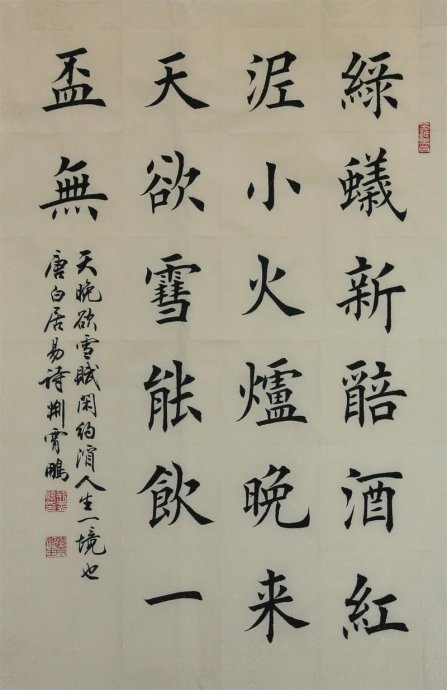 綠蟻新醅酒紅
泥小火爐晚来
天欲雪能飲一
盃無
天晚欲雪賦閑約人生一境也
唐白居易詩荆霄鵬